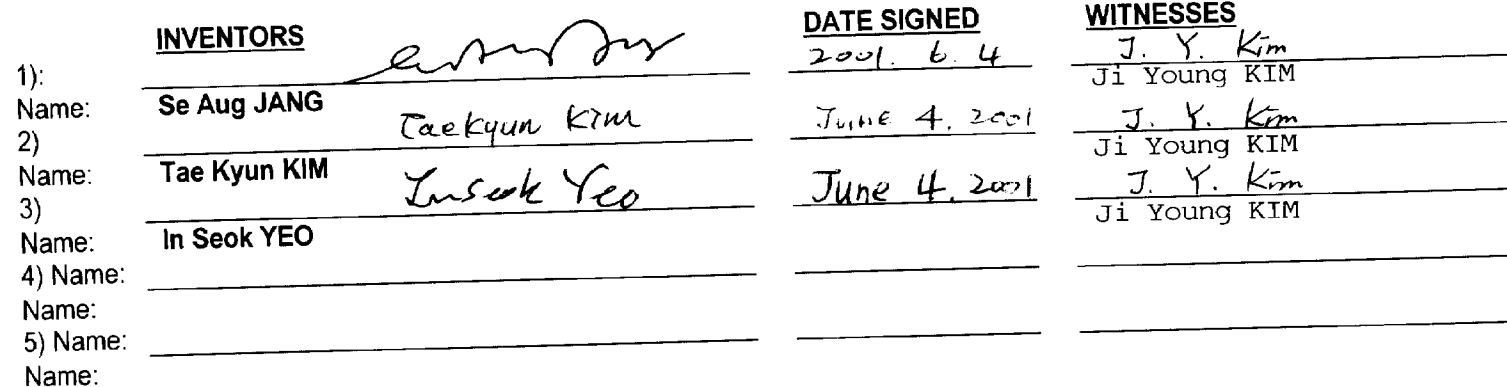 INVENTORS DATE SIGNED WITNESSES
1): 2001. 6. 4 J. Y. Kim
Name: Se Aug JANG Ji Young KIM
2) Taekyun Kim June 4. 2001 J. Y. Kim
Name: Tae Kyun KIM Ji Young KIM
3) Inseok Yeo June 4. 2001 J. Y. Kim
Name: In Seok YEO Ji Young KIM
4) Name:
Name:
5) Name:
Name: